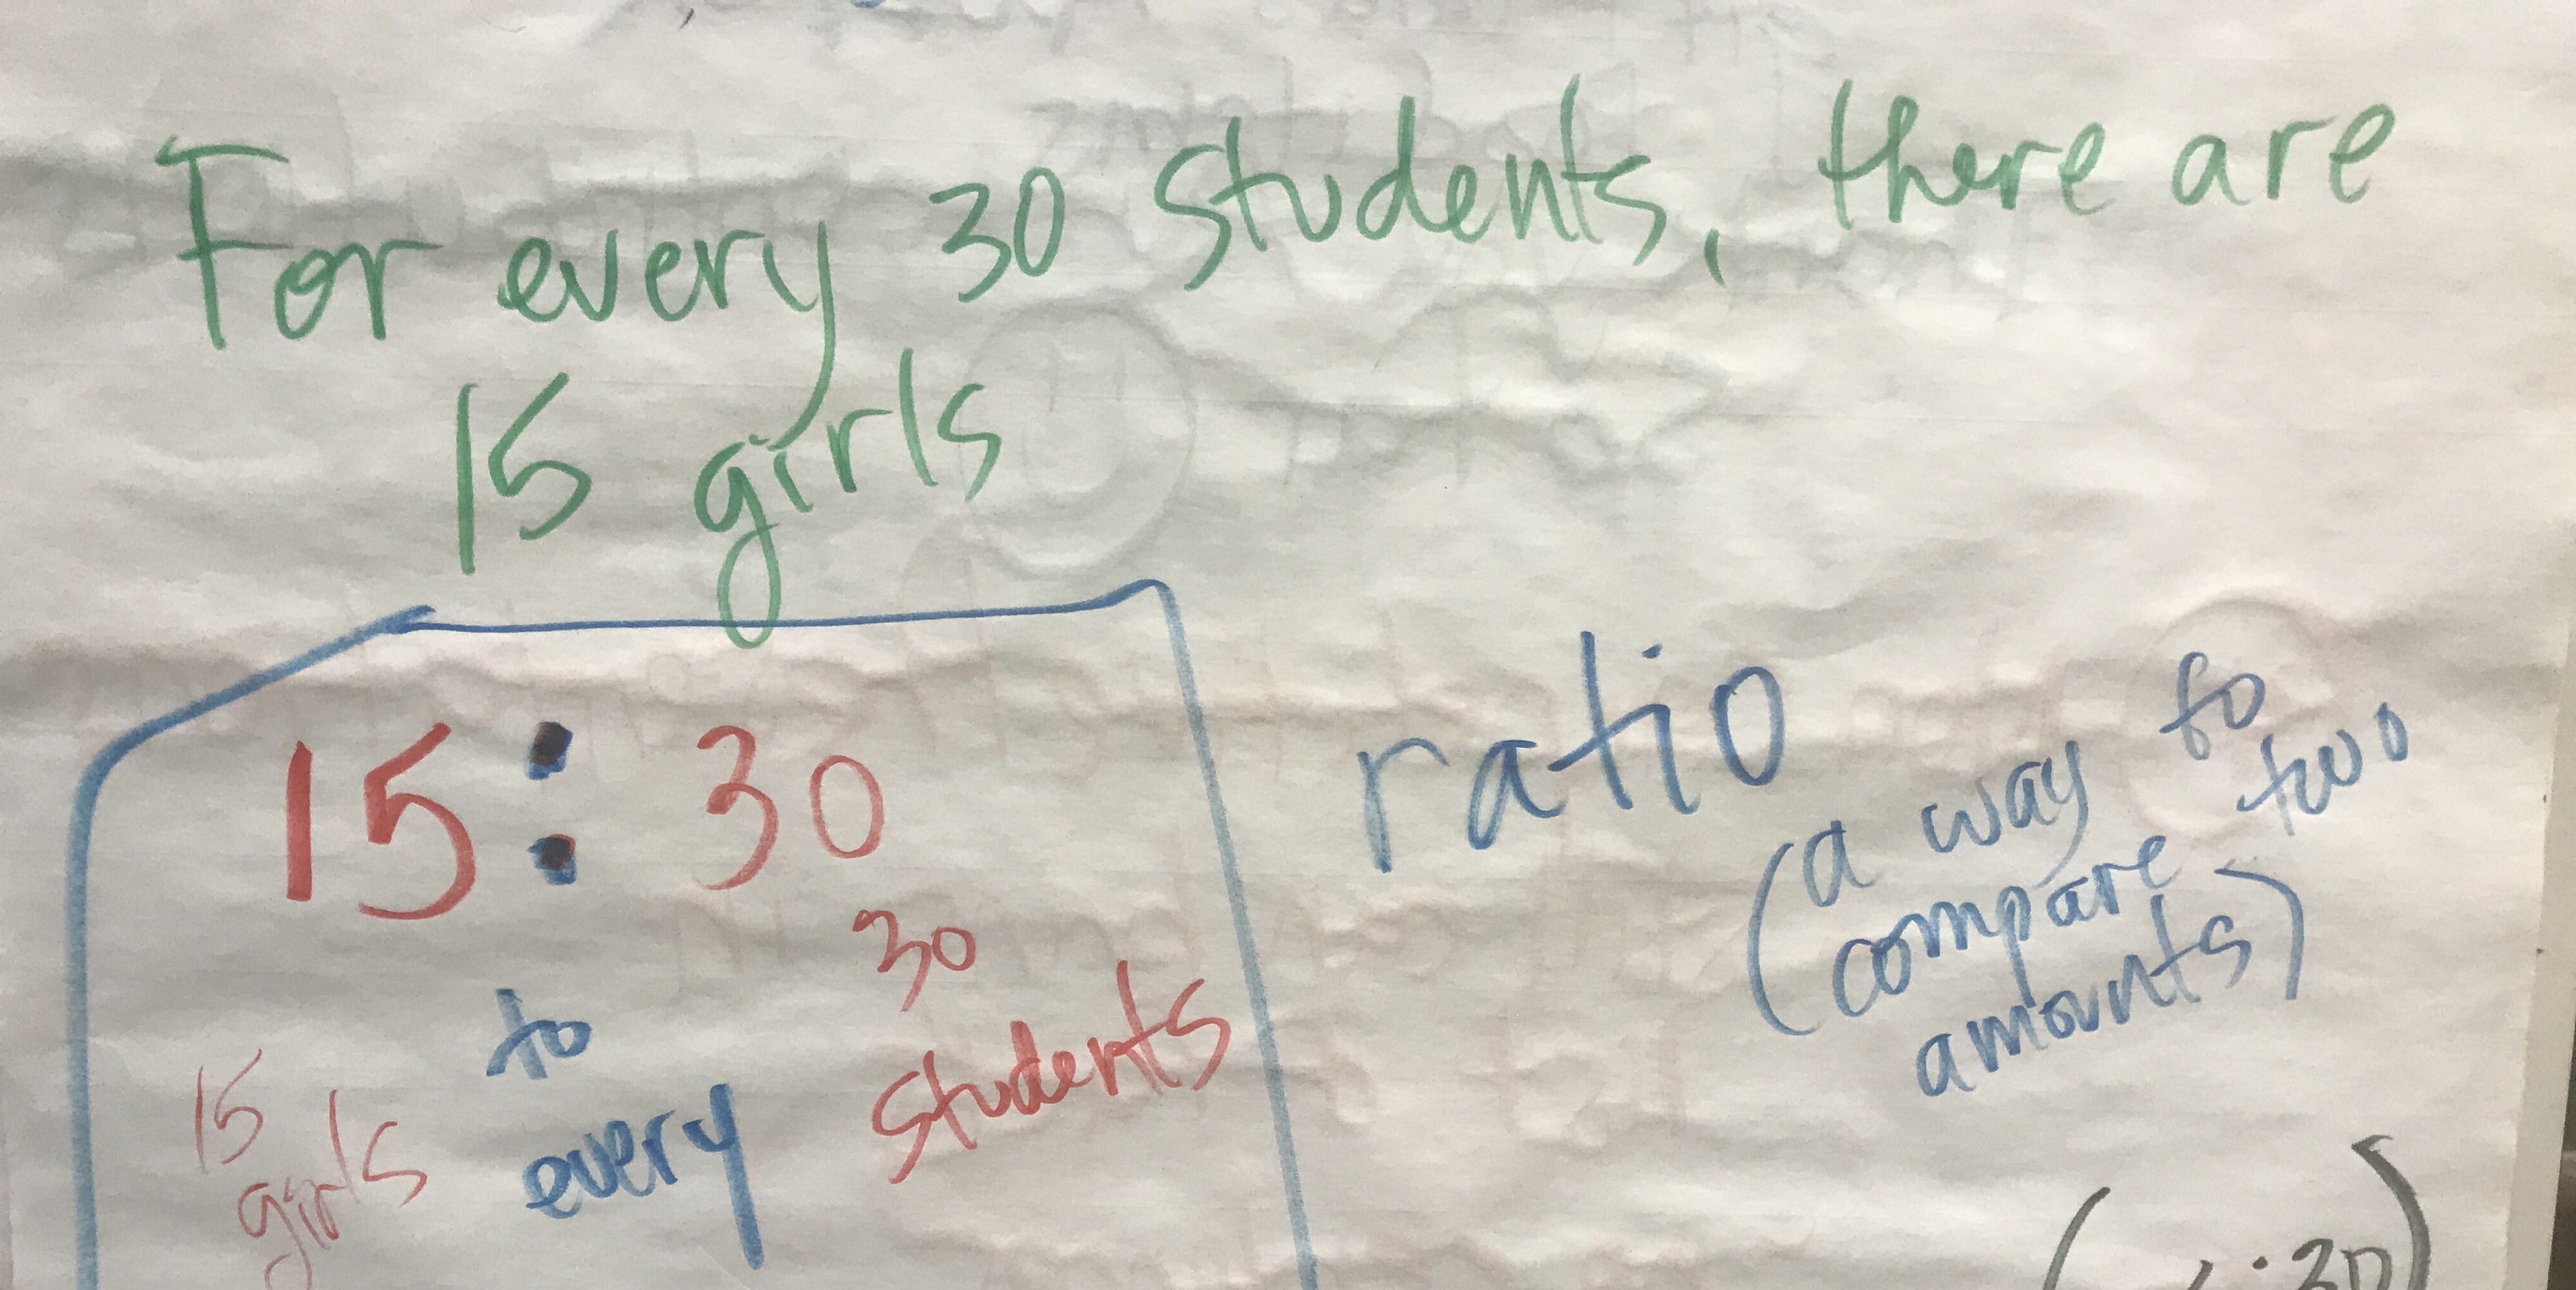 For every 30 students, there are
15 girls
15 : 30
15
girls
to
every
30
students
ratio
(a way to
compare two
amounts)
: 30)